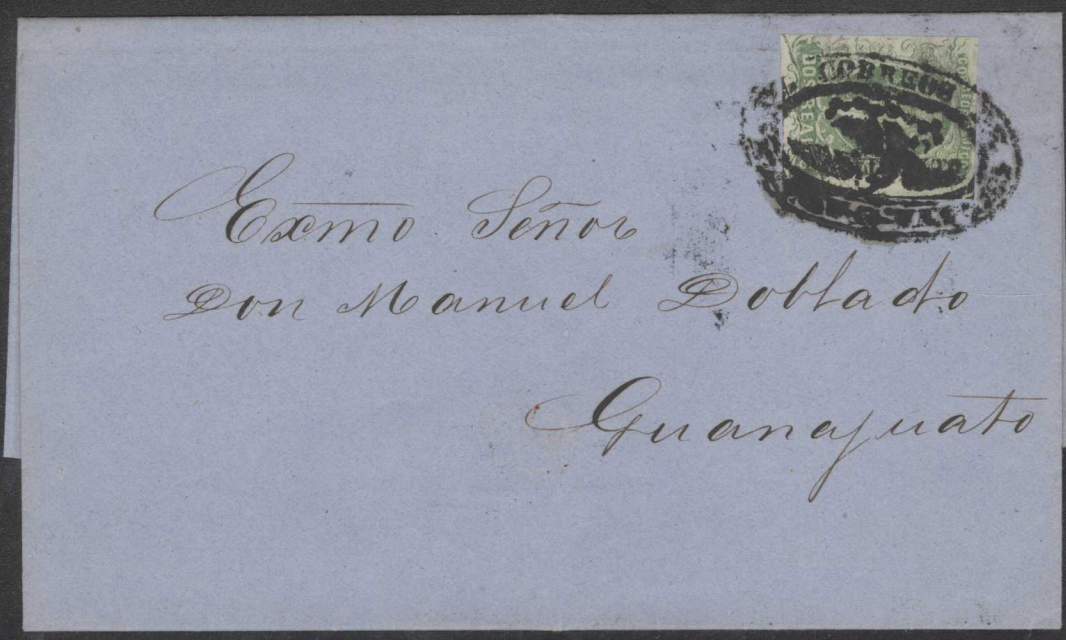 CORREOS
DOS REAL
Exmo. Señor
Don Manuel Doblado
Guanajuato